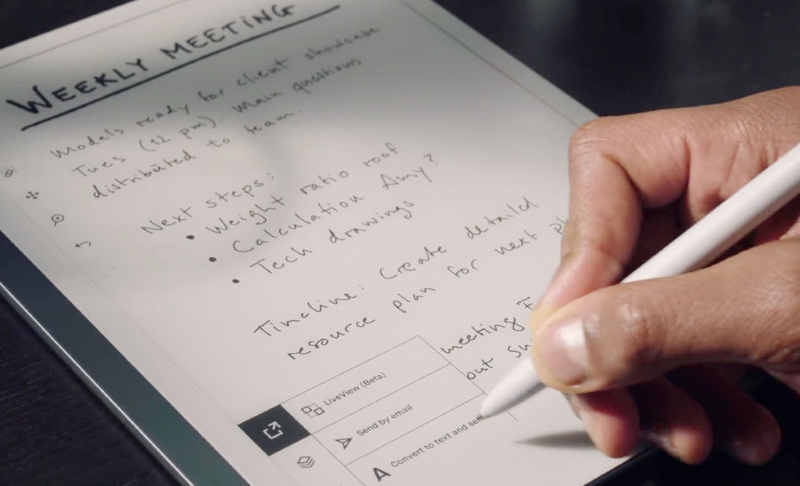 WEEKLY MEETING
Models ready for client showcase
Tues (12 pm). Main questions
distributed to team.
Next steps:
• Weight ratio roof
• Calculation Amy?
• Tech drawings
Timeline: Create detailed
resource plan for next
meeting
out
LiveView (Beta)
Send by email
Convert to text and